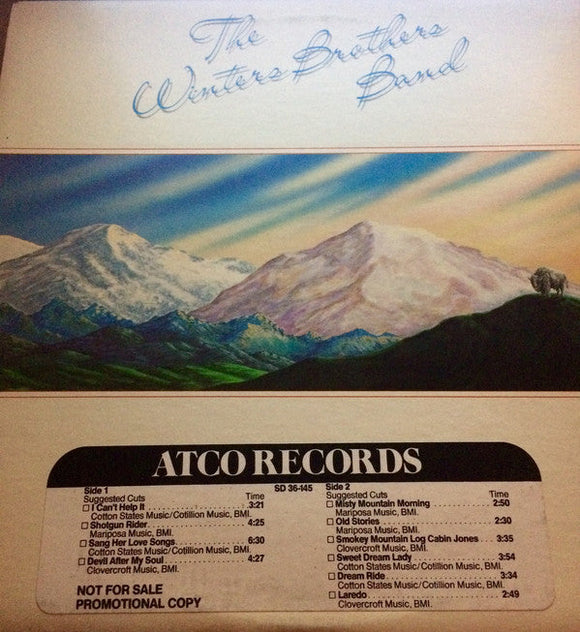 The
Winters Brothers
Band
ATCO RECORDS
Side 1
Suggested Cuts Time
☐ I Can't Help It 3:21
Cotton States Music/Cotillion Music, BMI.
☐ Shotgun Rider 4:25
Mariposa Music, BMI.
☐ Sang Her Love Songs 6:30
Cotton States Music/Cotillion Music, BMI.
☐ Devil After My Soul 4:27
Clovercroft Music, BMI.
NOT FOR SALE
PROMOTIONAL COPY
SD 36-145
Side 2
Suggested Cuts Time
☐ Misty Mountain Morning 2:50
Mariposa Music, BMI.
☐ Old Stories 2:30
Mariposa Music, BMI.
☐ Smokey Mountain Log Cabin Jones 3:35
Clovercroft Music, BMI.
☐ Sweet Dream Lady 3:54
Cotton States Music/Cotillion Music, BMI.
☐ Dream Ride 3:34
Cotton States Music/Cotillion Music, BMI.
☐ Laredo 2:49
Clovercroft Music, BMI.